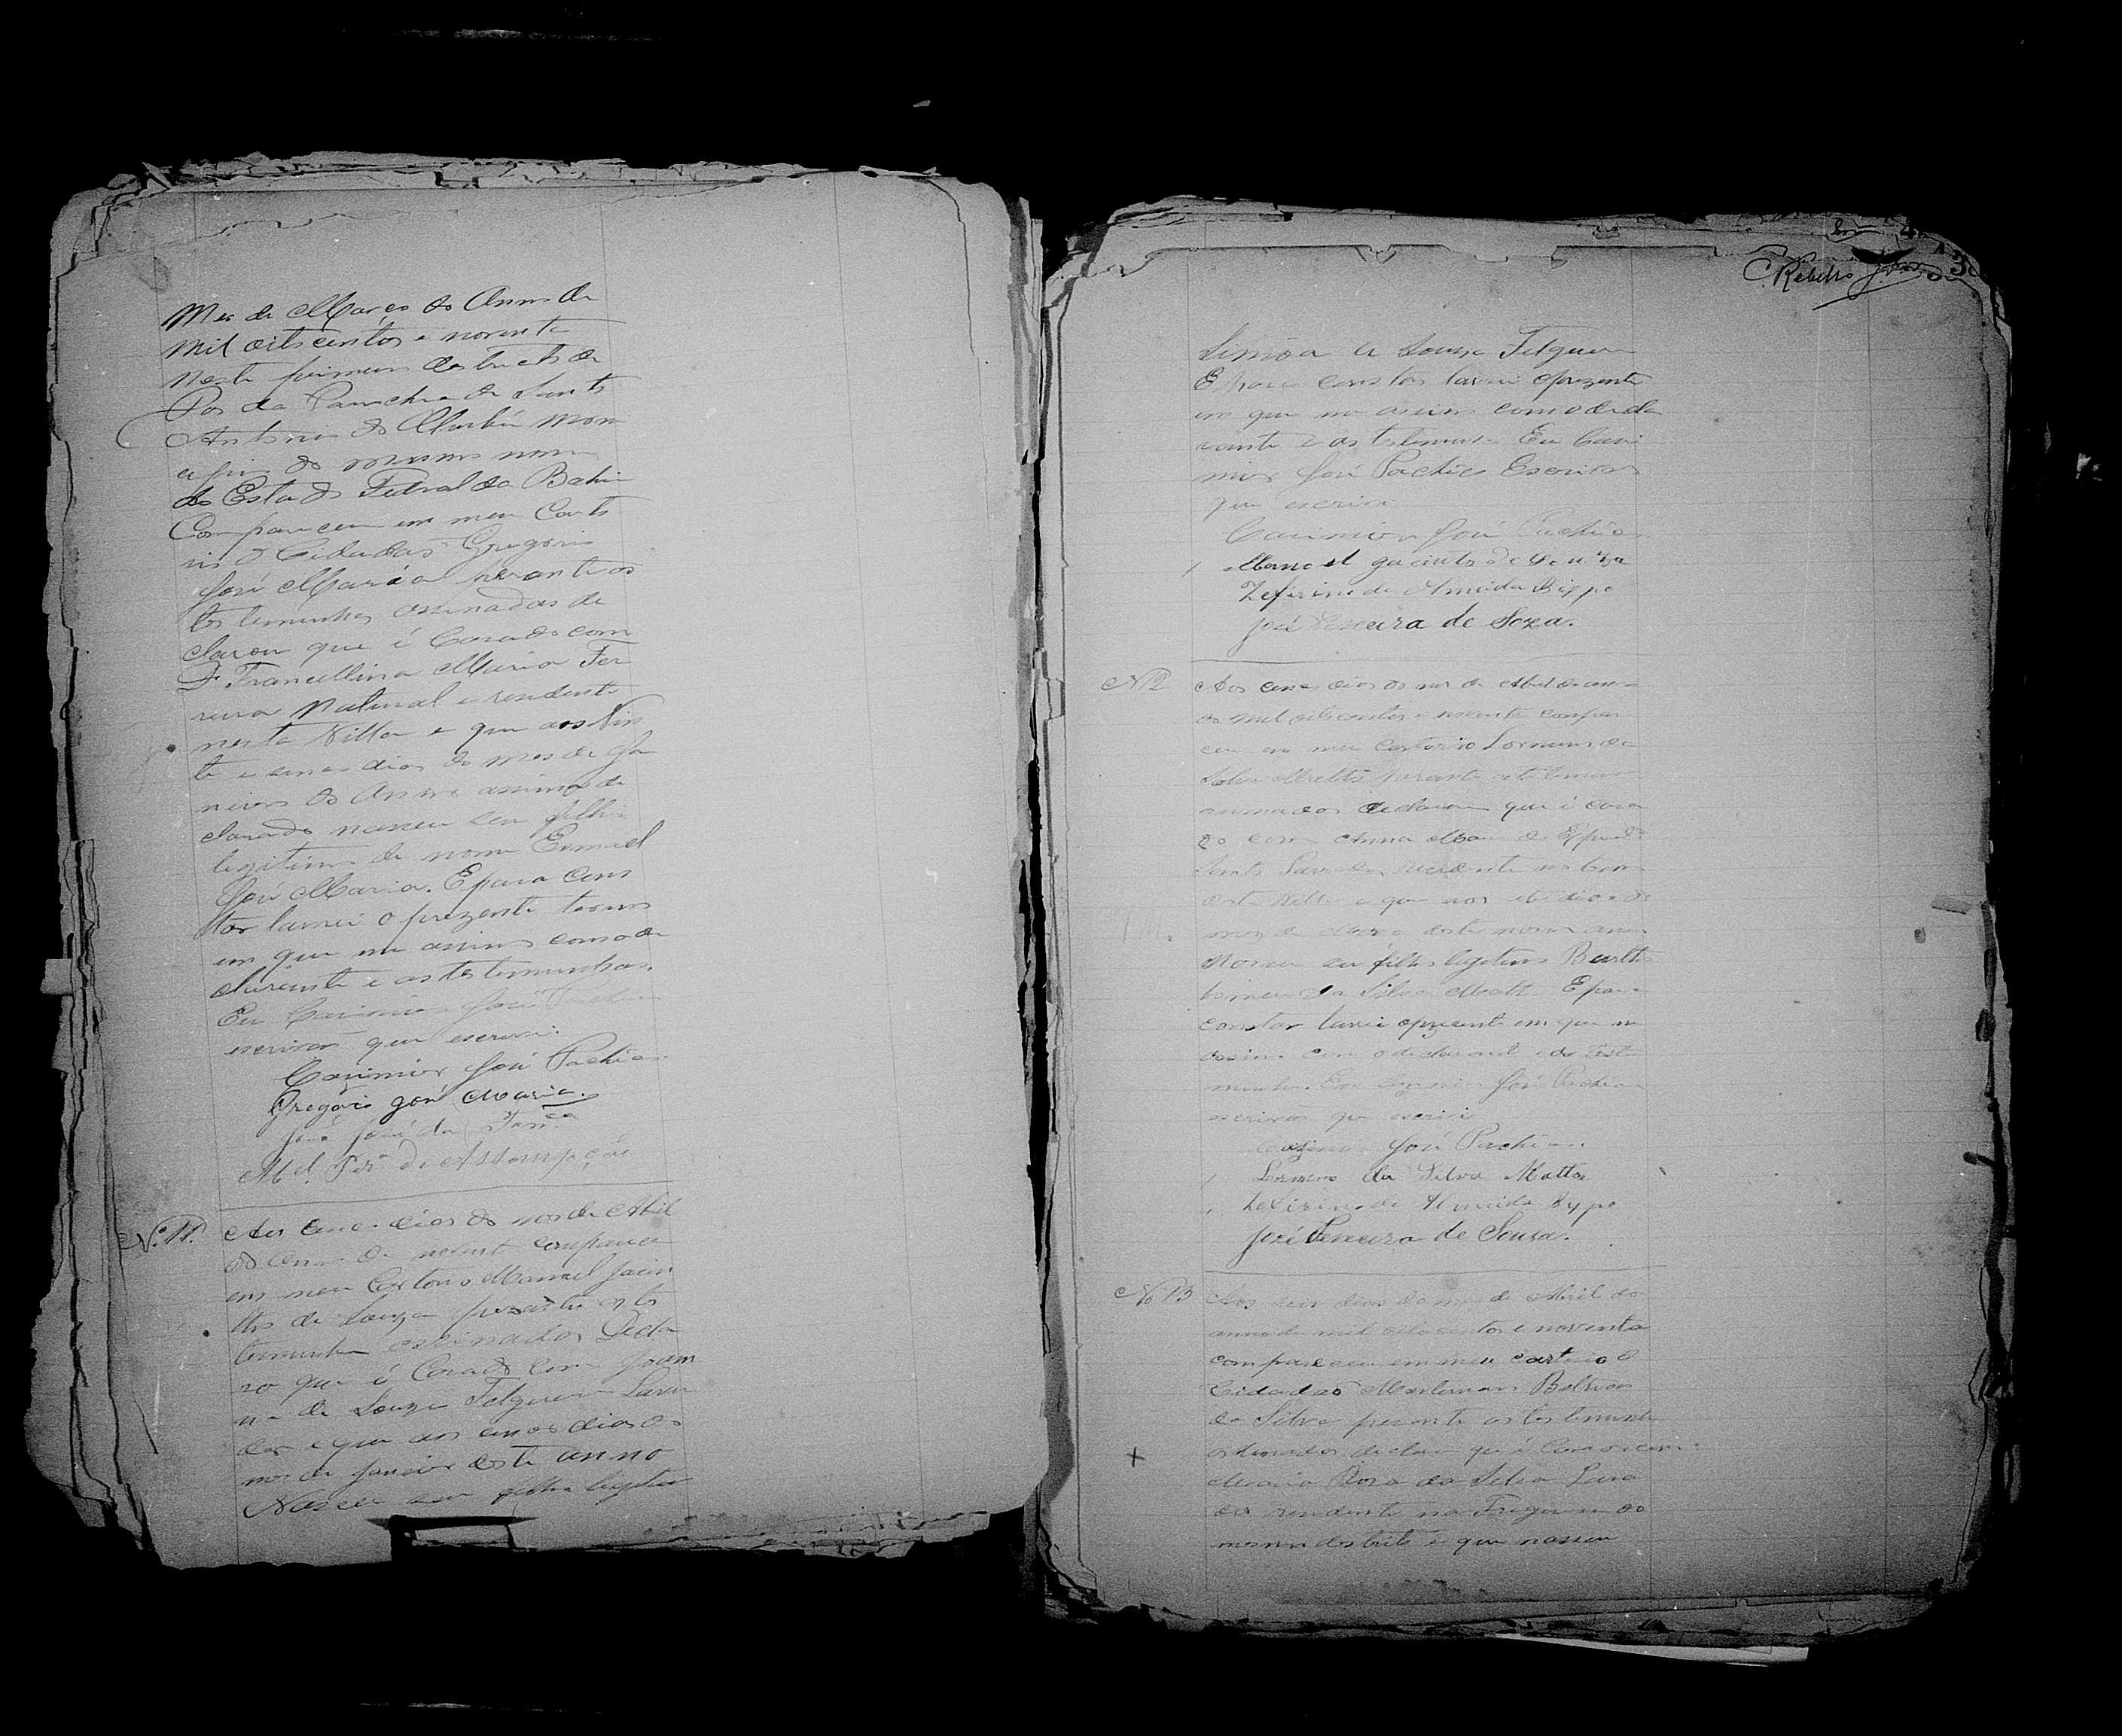 Mes de Março do Anno de
Mil oitocentos e noventa
neste primeiro destricto de
Pos da Parochia de Santo
Antonio do
do mesmo nome
do Estado Federal da Bahia
Compareceu em meu Carto
rio o Cidadão Gregorio
José Maria perante as
testemunhas assinadas de
clarou que é Casado com
D. Francellina Maria Fer
reira Natural e rendente
nesta Villa e que aos vin
te e cinco dias do mes de Ja
neiro do Anno assima de
clarado nasceu seu filho
legitimo de nome Esmael
José Maria. E para Cons
tar lavrei o prezente termo
em que me assino como de
clarante e as testemunhas.
Eu Casimiro José Pacheco
escrivão que escrevi.
Casimiro José Pacheco
Gregorio José Maria.
José José da
Mel. Per.a de Assumpção
N. 11. Aos cinco dias do mes de Abril
do Anno de novent compareceu
em meu Cartorio Manoel Jacin
tho de Souza perante as tes
temunhas assinadas Decla
ro que é Casado com Joan
na de Souza Felguera Lavra
dor e que aos cinco dias do
mes de Janeiro deste anno
Nasceu sua filha legitim
C. Rebello
3
Simôa de Souza Felguera
E para constar lavrei o prezente
em que me assino como o decla
rante e as testemunhas Eu Casi
miro José Pacheco Escrivão
que escrevi
Casimiro José Pacheco
Manoel Jacinto de Souza
Zeferino de Almeida Bispo
José Pereira de Soza.
N 12 Aos cinco dias do mes de Abril do anno
de mil oitocentos e noventa compare
ceu em meu Cartorio Lormino da
Silva Mattos perante as testemunhas
assinadas declarou que é casa
do com Anna Maria do Espirito
Santo Lavrador rendente no termo
desta Villa e que aos dias do
mez de Março deste mesmo anno
Nasceu seu filho legitimo Bartho
lomeu da Silva Matt E para
constar lavrei o prezente em que me
assino com o declarante e as teste
munhas. Eu Casimiro José Pacheco
escrivão que escrevi
Casimiro José Pacheco
Lormino da Silva Mattos
Zeferino de Almeida Bispo
José Pereira de Sousa.
No 13 Aos seis dias do mes de Abril do
anno de mil oitocentos e noventa
compareceu em meu cartorio o
Cidadão Martiniano
da Silva perante as testemunhas
assinadas declarou que é Casado com
Maria Roza da Silva Lavra
dor rendente na Freguezia do
mesmo destricto e que nasceu